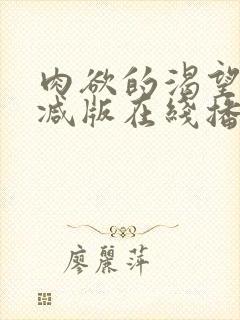 肉欲的渴望
减版在线播
廖丽萍